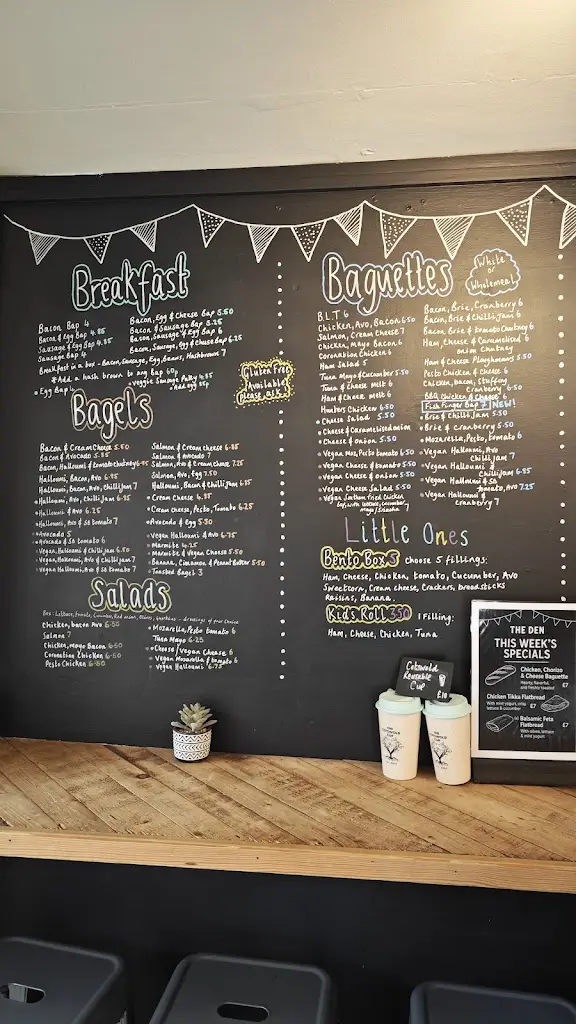 Breakfast
Bacon Bap 4
Bacon & Egg Bap 4.85
Sausage & Egg Bap 4.85
Sausage Bap 4
Bacon, Egg & Cheese Bap 5.50
Bacon & Sausage Bap 5.25
Bacon, Sausage & Egg Bap 6
Bacon, Sausage, Egg & Cheese Bap 6.25
Breakfast in a box - Bacon, Sausage, Egg, Beans, Hashbrowns 7
*Add a hash brown to any bap 60p
Egg Bap
Veggie Sausage Patty 4.85
+ add egg 85p
Gluten Free
Available
Please ask!
Bagels
Bacon & Cream Cheese 5.50
Bacon & Avocado 5.85
Bacon, Halloumi & tomato chutney 6.95
Halloumi, Bacon, Avo 6.95
Halloumi, Bacon, Avo, Chilli Jam 7
Halloumi, Avo, Chilli Jam 6.95
Halloumi & Avo 6.25
Halloumi, Avo & SB tomato 7
Avocado 5
Avocado & SB tomato 6
Vegan Halloumi & Chilli Jam 6.50
Vegan Halloumi, Avo & Chilli Jam 7
Vegan Halloumi, Avo & SB tomato 7
Salmon & Cream cheese 6.85
Salmon & Avocado 7
Salmon, Avo & Cream cheese 7.25
Salmon, Avo, Egg 7.50
Halloumi, Bacon & Chilli Jam 6.85
Cream Cheese 4.85
Cream Cheese, Pesto, Tomato 6.25
Avocado & Egg 5.50
Vegan Halloumi & Avo 6.75
Marmite 4.25
Marmite & Vegan Cheese 5.50
Banana, Cinnamon & Peanut Butter 5.50
Toasted Bagel 3
Salads
Chicken, Bacon Avo 6.50
Salmon 7
Chicken, Mayo Bacon 6.50
Coronation Chicken 6.50
Pesto Chicken 6.50
Mozarella, Pesto tomato 6
Tuna Mayo 6.25
Cheese/Vegan Cheese 6
Vegan Mozarella & tomato 6
Vegan Halloumi 6.75
Baguettes
White
or
Wholemeal
B.L.T 6
Chicken, Avo, Bacon 6.50
Salmon, Cream Cheese 7
Chicken, Mayo Bacon 6
Coronation Chicken 6
Ham Salad 5
Tuna Mayo & Cucumber 5.50
Tuna & Cheese Melt 6
Ham & Cheese Melt 6
Hunters Chicken 6.50
Cheese Salad 5.50
Cheese & Caramelised onion
Cheese & onion 5.50
Vegan Moz, Pesto tomato 6.50
Vegan Cheese & tomato 5.50
Vegan Cheese & onion 5.50
Vegan Cheese Salad 5.50
Vegan Southern Fried Chicken
Bacon, Brie, Cranberry 6
Bacon, Brie & Chilli Jam 6
Bacon, Brie & tomato Chutney 6
Ham, Cheese & Caramelised
onion Chutney
Ham & Cheese Ploughmans 5.50
Pesto Chicken & Cheese 6
Chicken, bacon, Stuffing
Cranberry 6.50
BBQ Chicken & Cheese 6
Fish Finger Bap 7 NEW!
Brie & Chilli Jam 5.50
Brie & Cranberry 5.50
Mozarella, Pesto, tomato 6
Vegan Halloumi, Avo
Chilli Jam 7
Vegan Halloumi &
Chilli Jam 6.25
Vegan Halloumi & SB
tomato, Avo 7.25
Vegan Halloumi &
Cranberry 7
Little Ones
Bento Box 5 choose 5 fillings:
Ham, Cheese, Chicken, tomato, Cucumber, Avo
Sweetcorn, Cream Cheese, Crackers, breadsticks
Raisins, Banana.
Kids Roll 3.50 1 Filling:
Ham, Cheese, Chicken, Tuna
Cotswold
Reusable
Cup
£10
THE DEN
THIS WEEK'S
SPECIALS
Chicken, Chorizo
& Cheese Baguette
£7
Chicken Tikka Flatbread
With mint yogurt, crisp
lettuce & cucumber
£7
Balsamic Feta
Flatbread
£7